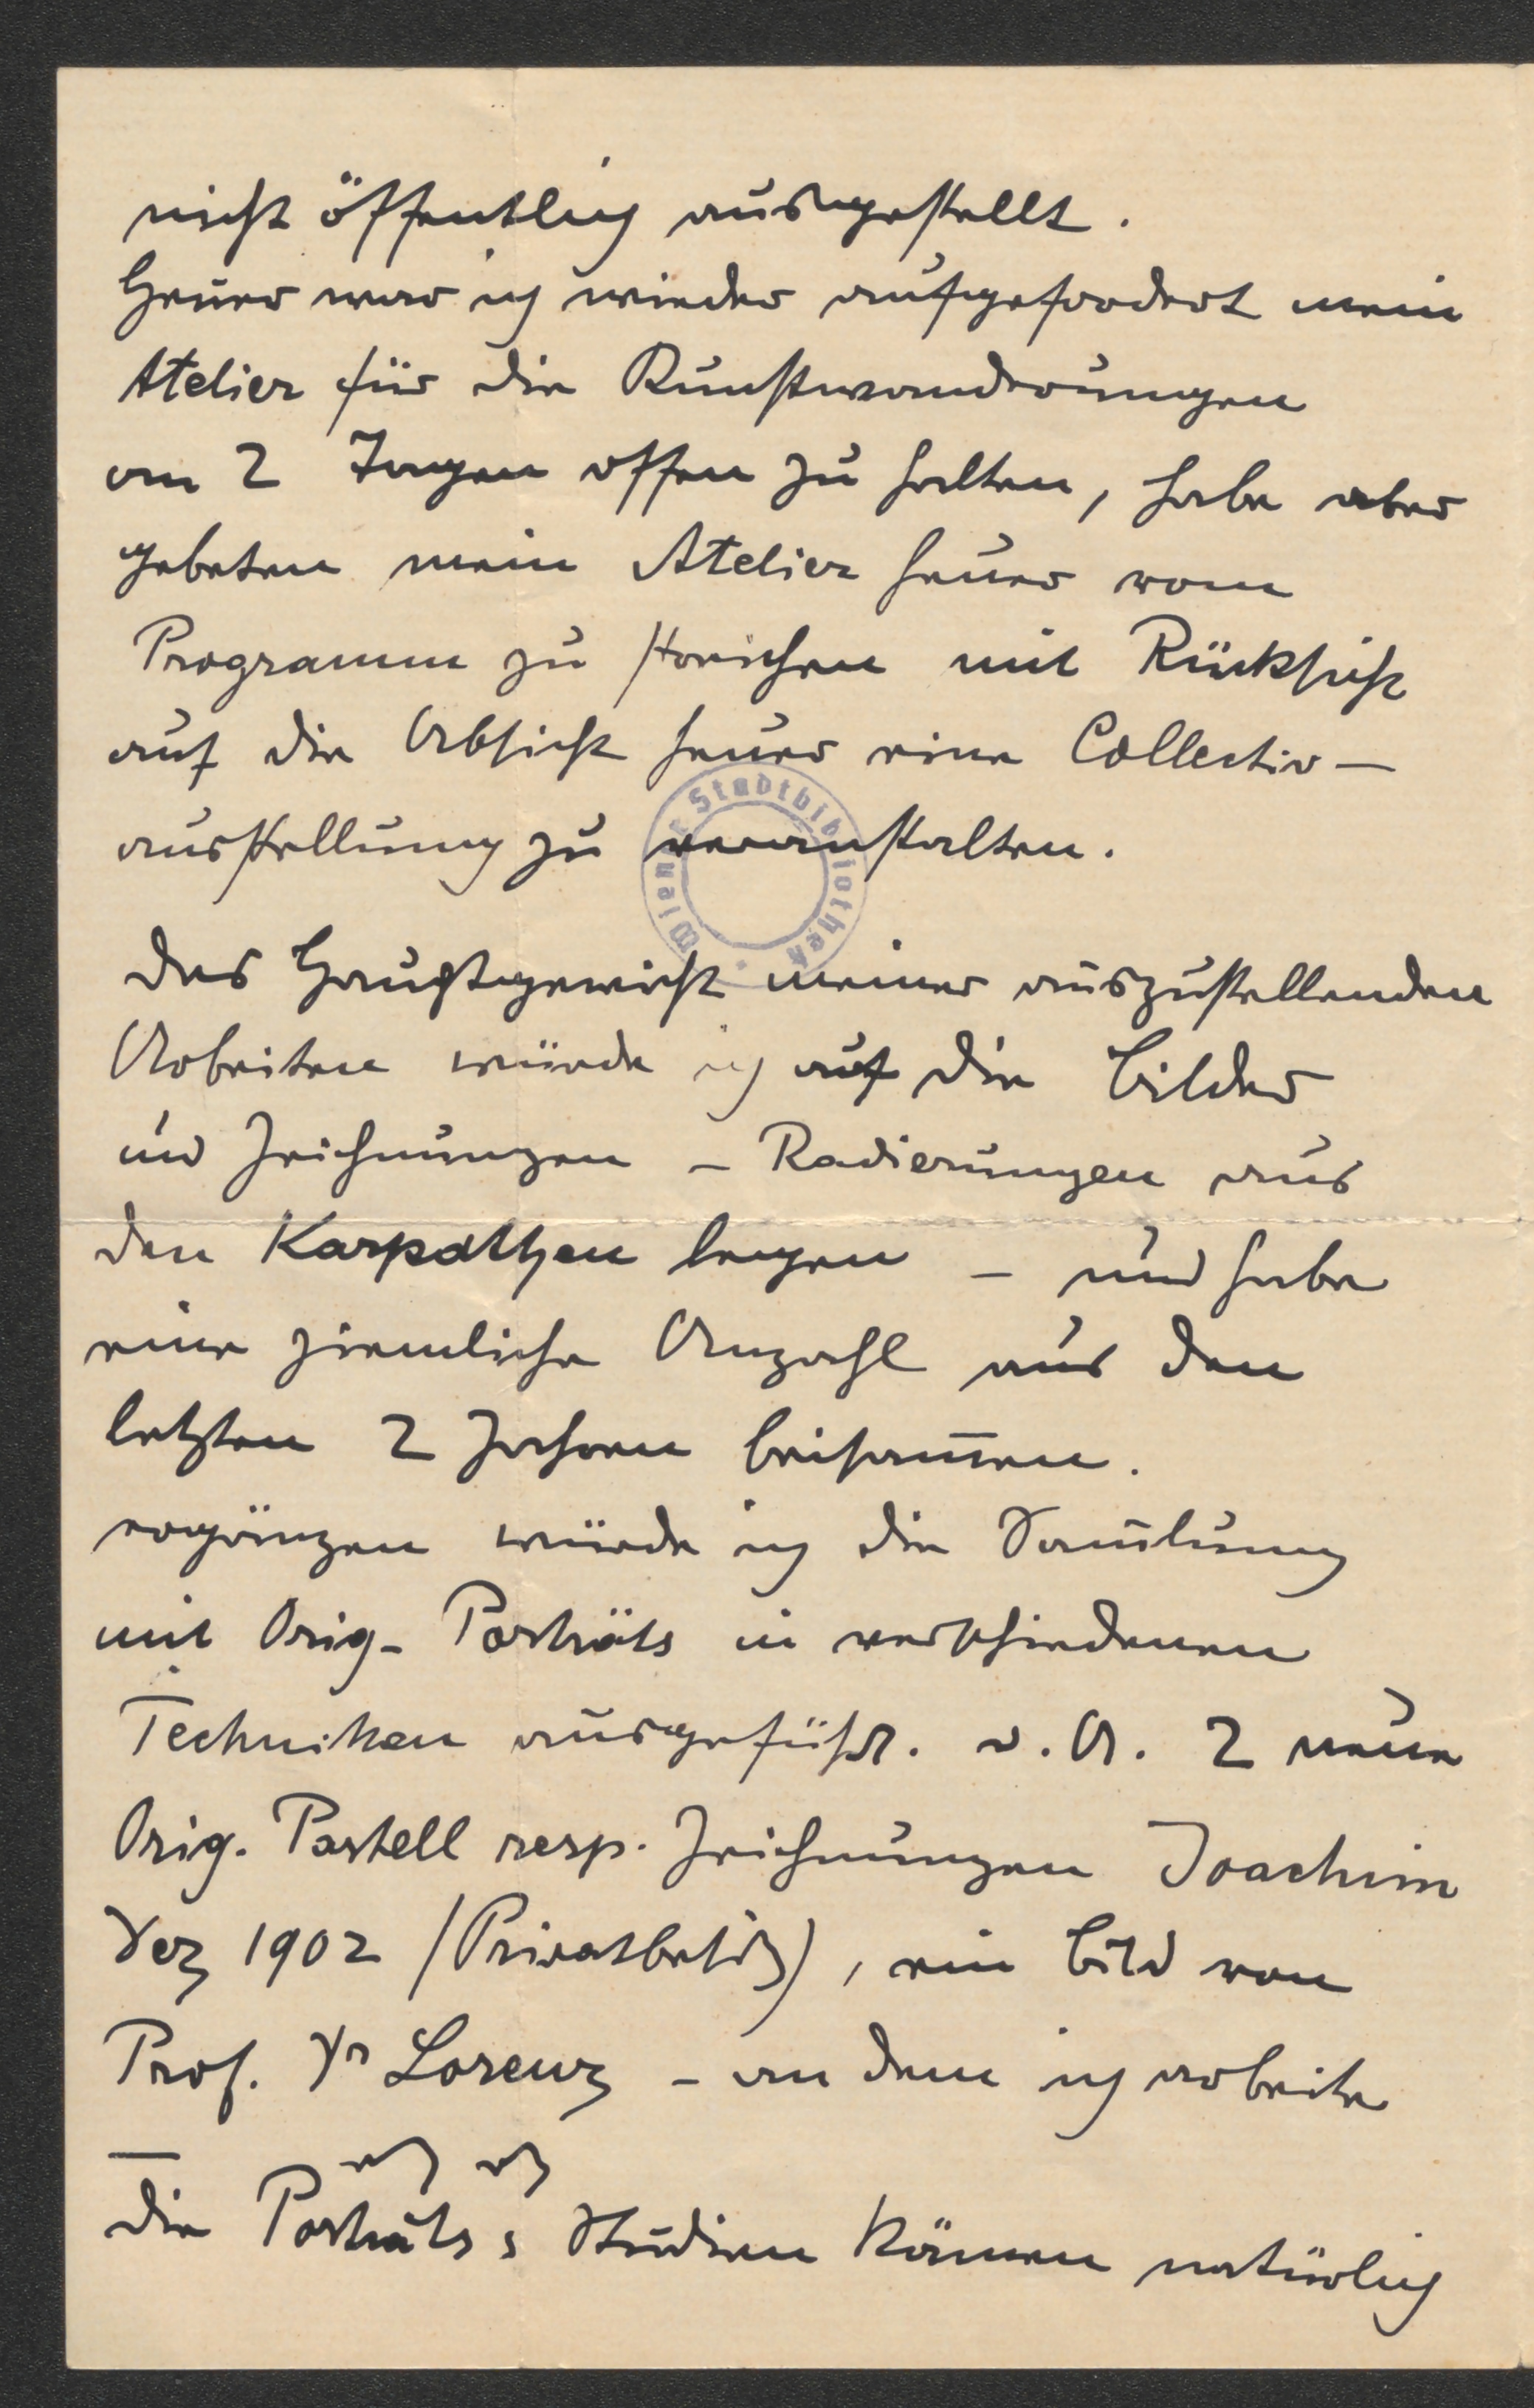 nicht öffentlich ausgestellt.
Heuer war ich wieder aufgefordert mein
Atelier für die Kunstwanderungen
an 2 Tagen offen zu halten, habe aber
gebeten mein Atelier heuer vom
Programm zu streichen mit Rücksicht
auf die Absicht heuer eine Collectiv-
ausstellung zu veranstalten.
Wiener Stadtbibliothek
das Hauptgewicht meiner auszustellenden
Arbeiten würde ich auf die Bilder
und Zeichnungen – Radierungen aus
den Karpathen legen – und habe
eine ziemliche Anzahl aus den
letzten 2 Jahren beisam̄en.
ergänzen würde ich die Sam̄lung
mit Orig- Porträts in verschiedenen
Techniken ausgeführt. u. A. 2 neue
Orig. Pastell resp. Zeichnungen Joachim
Dez 1902 (Privatbesitz), ein Bild von
Prof. Dr Lorenz – an dem ich arbeite
etz etz
die Porträts, Studien können natürlich